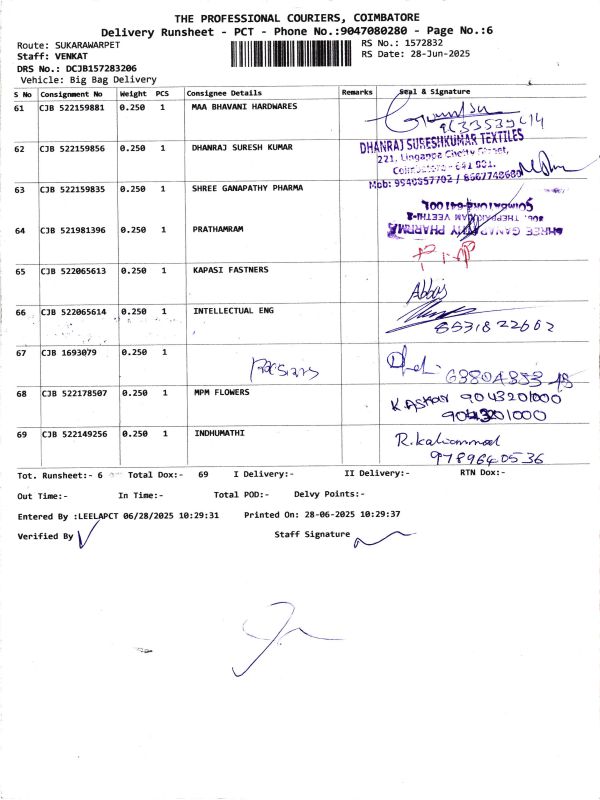 THE PROFESSIONAL COURIERS, COIMBATORE
Delivery Runsheet - PCT - Phone No.:9047080280 - Page No.:6
Route: SUKARAWARPET
RS No.: 1572832
Staff: VENKAT
RS Date: 28-Jun-2025
DRS No.: DCJB157283206
Vehicle: Big Bag Delivery
S No Consignment No Weight PCS Consignee Details Remarks Seal & Signature
61 CJB 522159881 0.250 1 MAA BHAVANI HARDWARES
62 CJB 522159856 0.250 1 DHANRAJ SURESH KUMAR
DHANRAJ SURESHKUMAR TEXTILES
221, Lingappa Chetty Street,
Coimbatore - 641 001.
Mob: 9940357702 / 8667748680
63 CJB 522159835 0.250 1 SHREE GANAPATHY PHARMA
SHREE GANAPATHY PHARMA
COIMBATORE-641 001.
64 CJB 521981396 0.250 1 PRATHAMRAM
65 CJB 522065613 0.250 1 KAPASI FASTNERS
Abbas
66 CJB 522065614 0.250 1 INTELLECTUAL ENG
8531822662
67 CJB 1693079 0.250 1
68 CJB 522178507 0.250 1 MPM FLOWERS
9043201000
9043201000
69 CJB 522149256 0.250 1 INDHUMATHI
R.kaliammal
9789640536
Tot. Runsheet:- 6 Total Dox:- 69 I Delivery:- II Delivery:- RTN Dox:-
Out Time:- In Time:- Total POD:- Delvy Points:-
Entered By :LEELAPCT 06/28/2025 10:29:31 Printed On: 28-06-2025 10:29:37
Verified By
Staff Signature